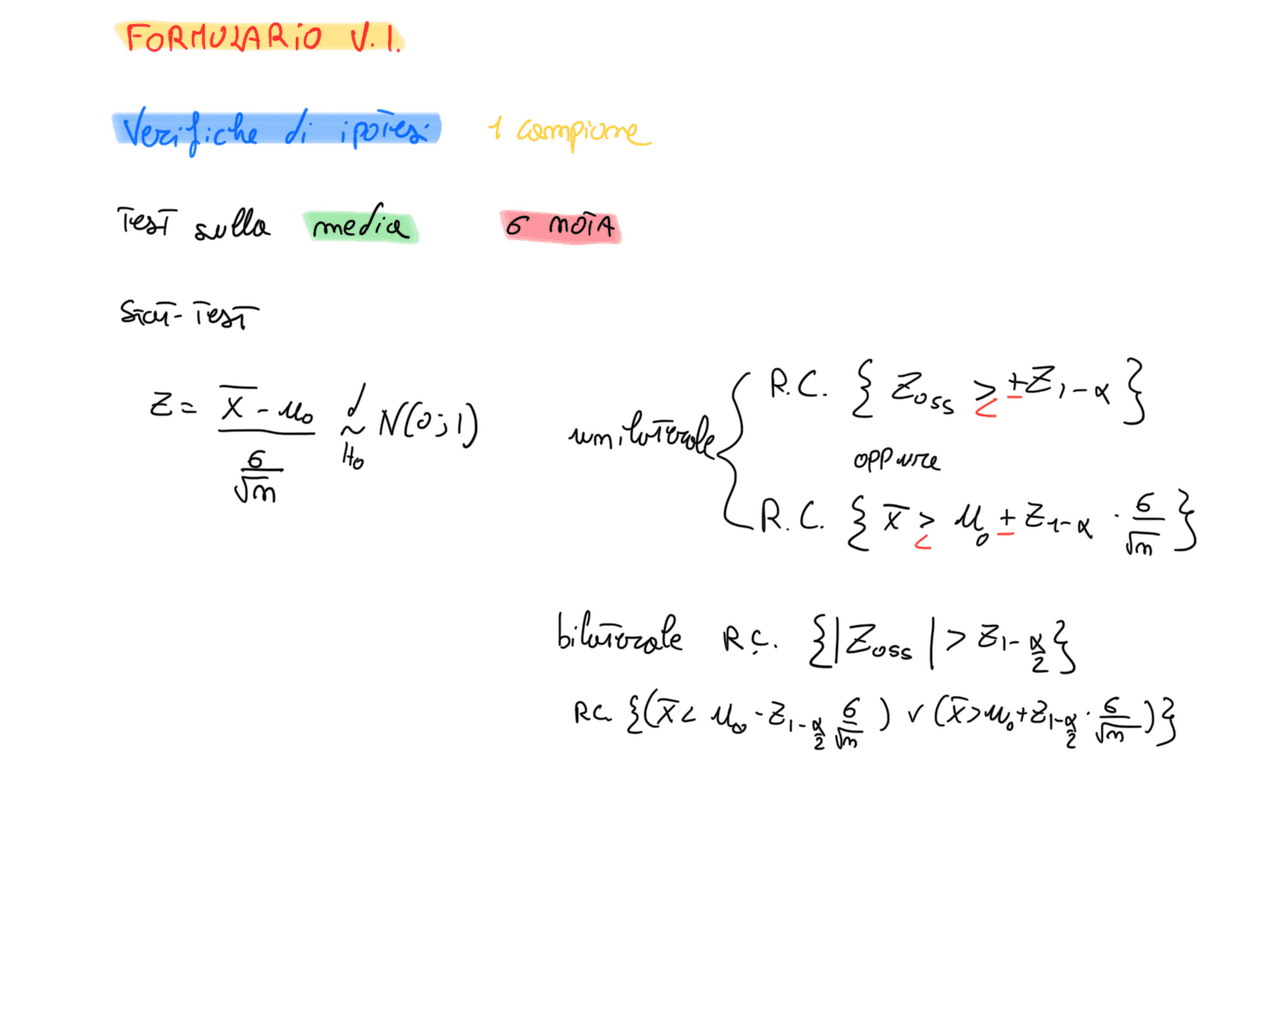 FORMULARIO V.I.
Verifiche di ipotesi 1 campione
Test sulla media σ NOTA
Stat-Test
Z = (X̄ - μ₀) / (σ/√n) ~ᵈ_H₀ N(0;1)
unilaterale
R.C. { Z_oss ≷ ±Z_1-α }
oppure
R.C. { x̄ ≷ μ₀ ± Z_1-α · σ/√n }
bilaterale R.C. { |Z_oss| > Z_1-α/2 }
R.C. {(x̄ < μ₀ - Z_1-α/2 σ/√n) ∨ (x̄ > μ₀ + Z_1-α/2 · σ/√n)}